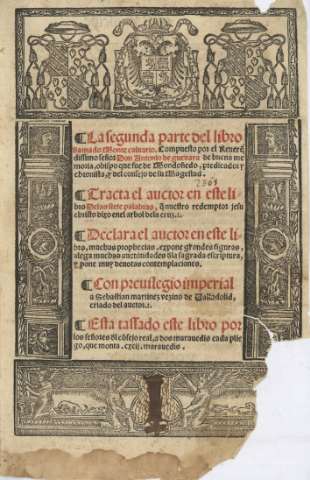 ¶La segunda parte del libro
llamado Monte caluario. Compuesto por el Reuerē
dissimo señor Don Antonio de gueuara de buena me
moria, obispo que fue de Mondoñedo, predicador y
chronista, y del consejo de su Magestad.
2361
¶Tracta el auctor en este li
bro Delas siete palabras, q̃ nuestro redemptor jesu
christo dixo enel arbol dela cruz.
¶Declara el auctor en este li-
bro, muchas prophecias, expone grandes figuras,
alega muchas auctoridades dla sagrada escriptura,
y pone muy deuotas contemplaciones.
¶Con preuilegio imperial
a Sebastian martinez vezino de Valladolid,
criado del auctor.
¶Esta tassado este libro por
los señores dl cōsejo real, a dos marauedis cada plie
go, que monta. cxcij. marauedis.